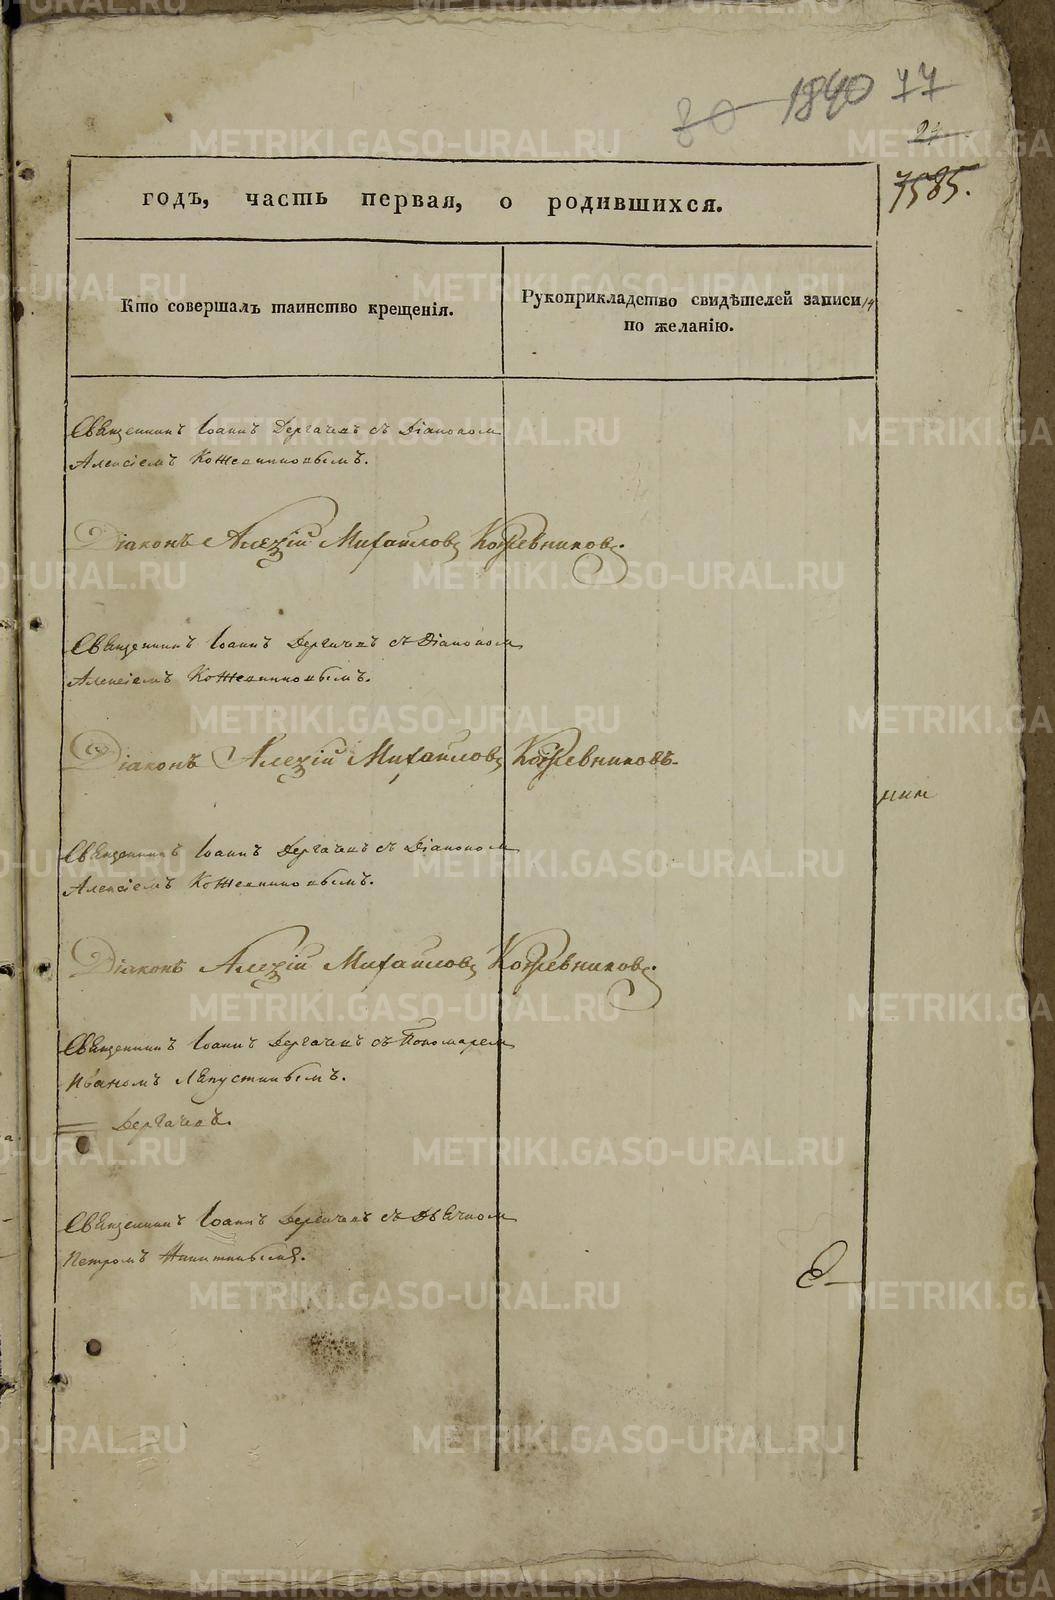 1840 77
7585.
годъ, часть первая, о родившихся.
Кто совершалъ таинство крещенія.
Рукоприкладство свидѣтелей записи
по желанію.
Священникъ Іоаннъ Дергачевъ съ Діакономъ
Алексіемъ Кожевниковымъ.
Діаконъ Алексій Михайловъ Кожевниковъ.
Священникъ Іоаннъ Дергачевъ съ Діакономъ
Алексіемъ Кожевниковымъ.
Діаконъ Алексій Михайловъ Кожевниковъ.
Священникъ Іоаннъ Дергачевъ съ Діакономъ
Алексіемъ Кожевниковымъ.
Діаконъ Алексій Михайловъ Кожевниковъ.
Священникъ Іоаннъ Дергачевъ съ Пономаремъ
Иваномъ
Дергачевъ.
Священникъ Іоаннъ Дергачевъ съ Дьячкомъ
Петромъ Никитинымъ.
METRIKI.GASO-URAL.RU